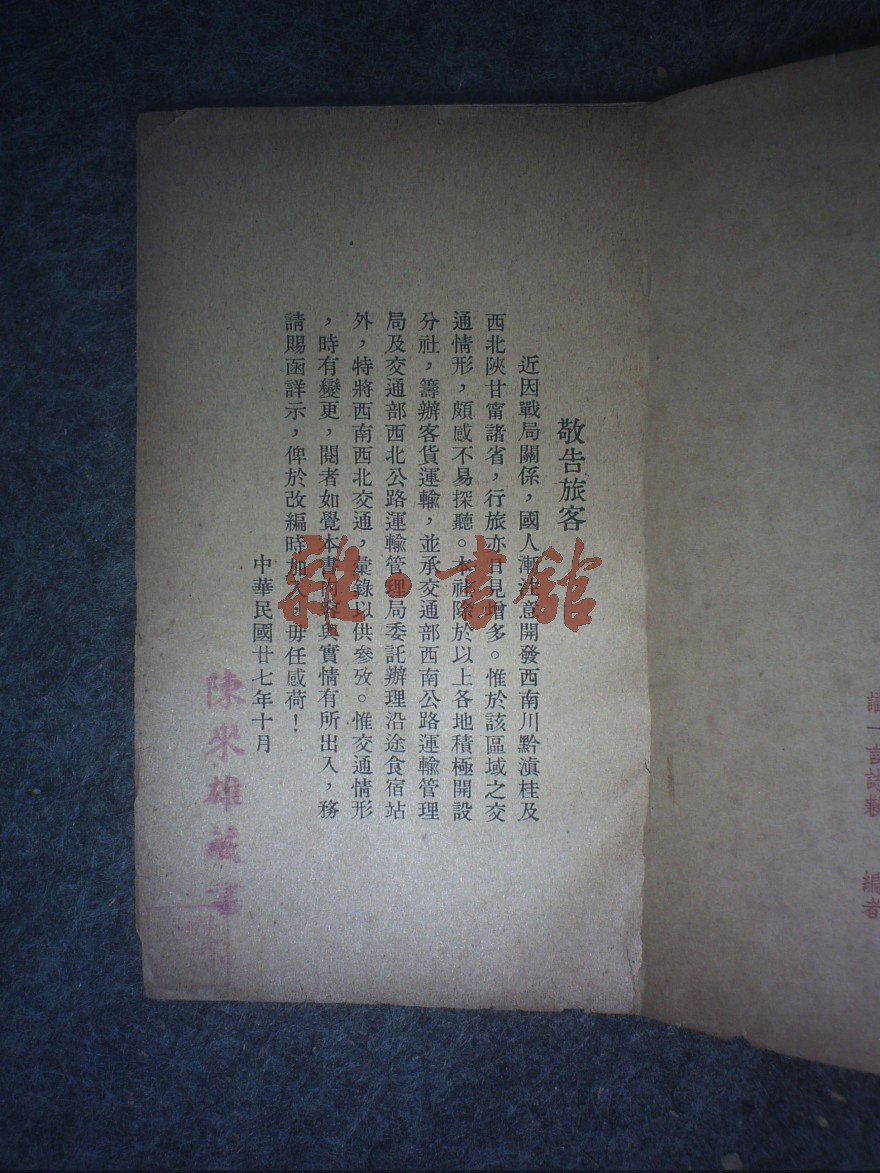 敬告旅客
近因戰局關係，國人漸注意開發西南川黔滇桂及
西北陝甘甯諸省，行旅亦日見增多。惟於該區域之交
通情形，頗感不易探聽。本社除於以上各地積極開設
分社，籌辦客貨運輸，並承交通部西南公路運輸管理
局及交通部西北公路運輸管理局委託辦理沿途食宿站
外，特將西南西北交通，彙錄以供參攷。惟交通情形
，時有變更，閱者如覺本書內容與實情有所出入，務
請賜函詳示，俾於改編時加入，毋任感荷！
中華民國廿七年十月
陳來雄藏書
雜·書館
編者